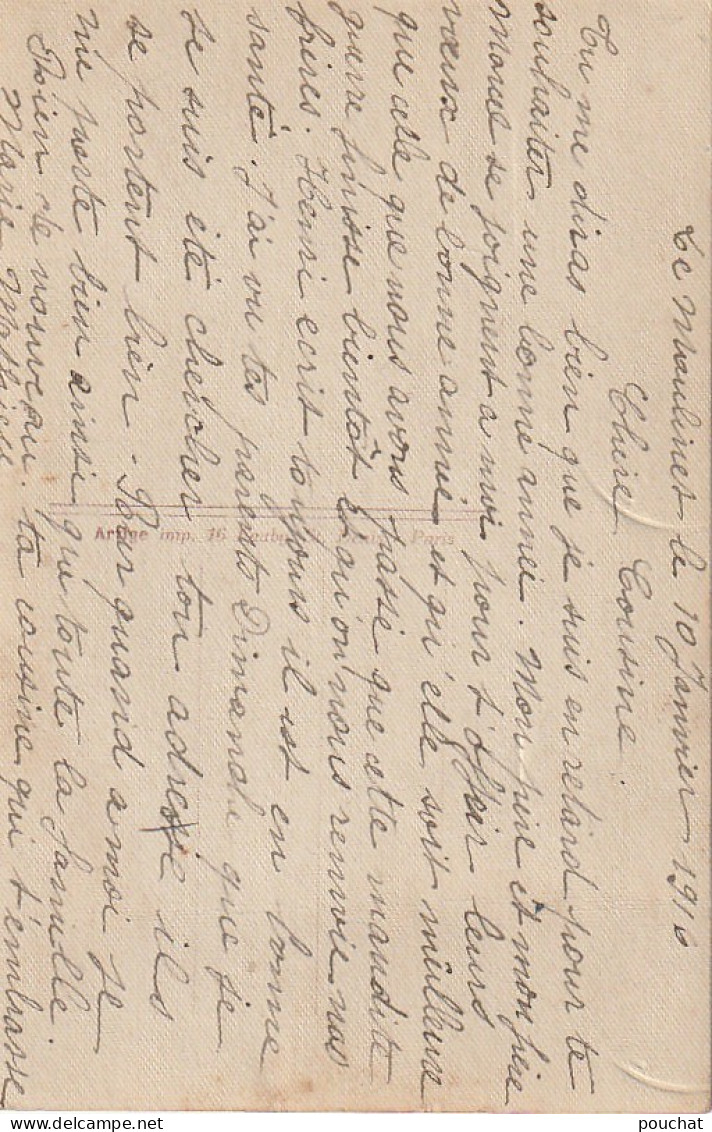 Le Moulinet le 10 Janvier 1916
Chère Cousine.
Tu me diras bien que je suis en retard pour te
souhaiter une bonne année. Mon père et mon frère
se joignent a moi pour t'offrir leurs
vœux de bonne année et qu'elle soit meilleure
que celle que nous avons passé que cette maudite
guerre finisse bientôt et qu'on nous renvoie nos
frères. Henri ecrit toujours il est en bonne
santé. J'ai vu tes parents Dimanche que je
se suis été chercher ton adresse ils
se portent bien. Pour quand a moi je
me porte bien ainsi que toute la famille.
Rien de nouveau. ta cousine qui t'embrasse
Marie
imp. 16 Paris
pouchat